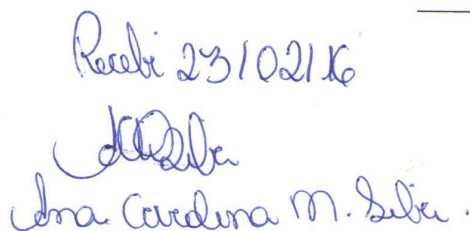 Recebi 23/02/16
Ana Carolina M. Silva.